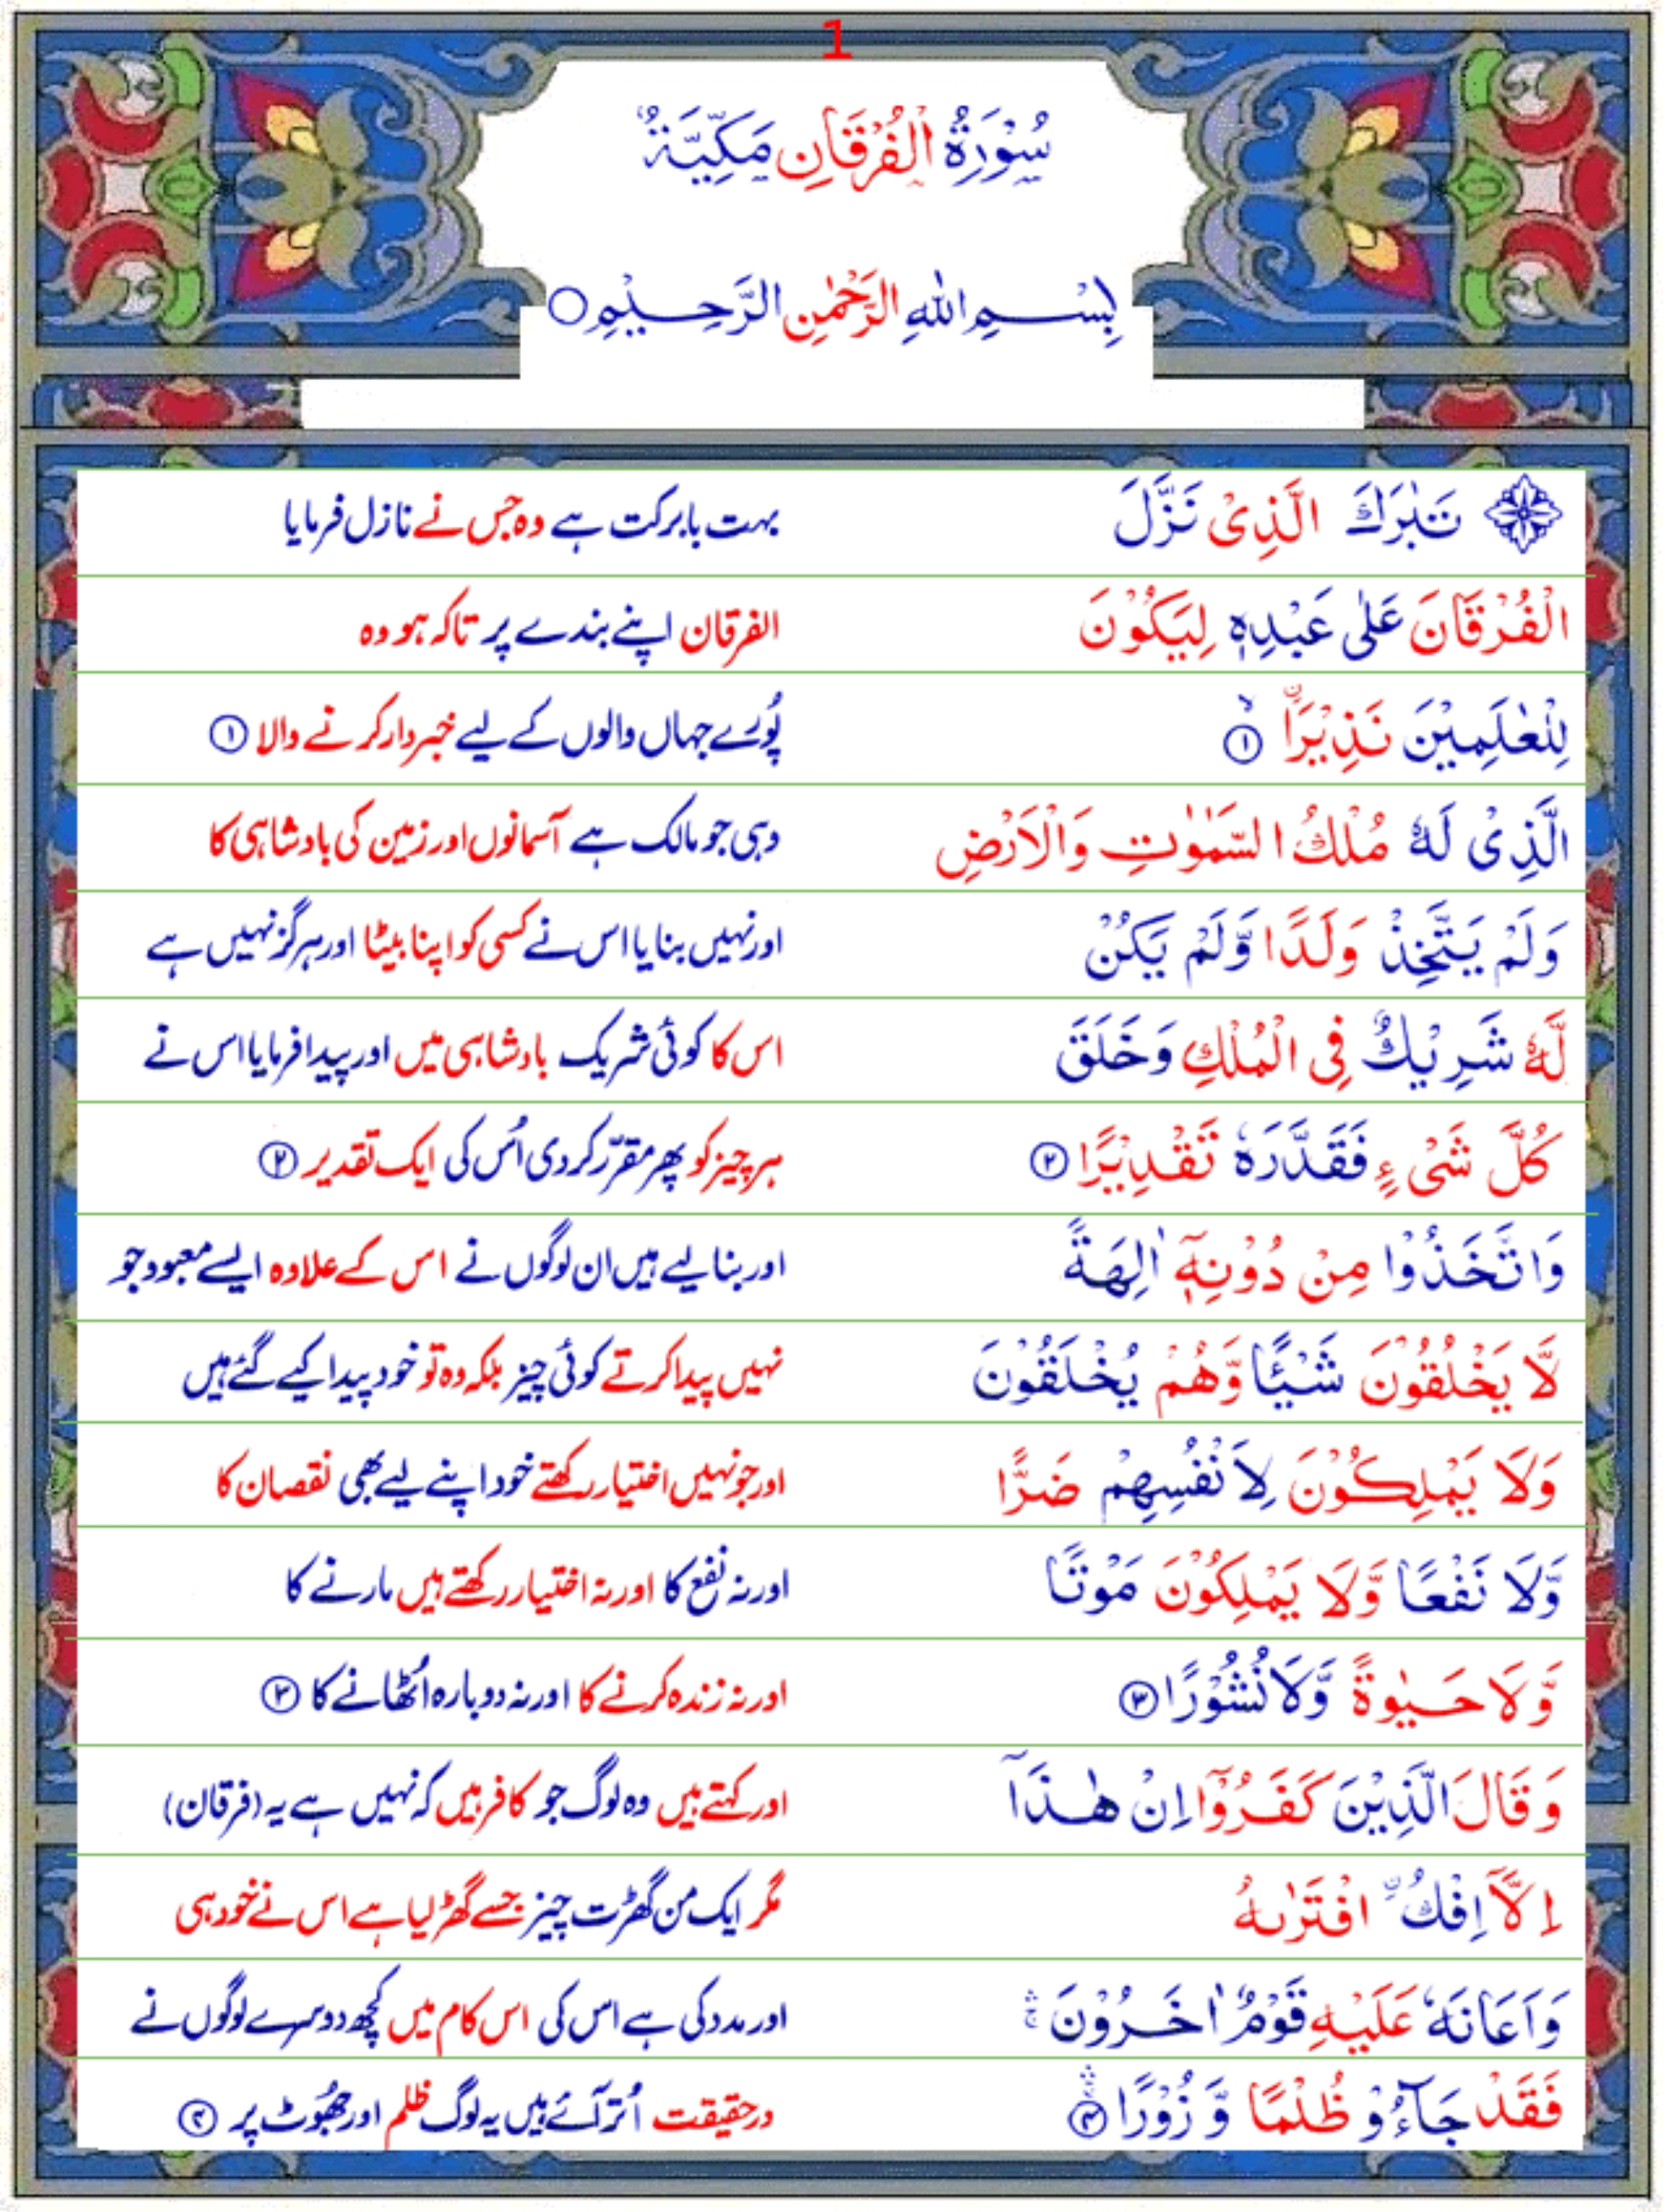 1
سُوْرَةُ الْفُرْقَانِ مَكِّيَّةٌ
بِسْمِ اللهِ الرَّحْمٰنِ الرَّحِيْمِ○
تَبٰرَكَ الَّذِىْ نَزَّلَ بہت بابرکت ہے وہ جس نے نازل فرمایا
الْفُرْقَانَ عَلٰى عَبْدِهٖ لِيَكُوْنَ الفرقان اپنے بندے پر تاکہ ہو وہ
لِلْعٰلَمِيْنَ نَذِيْرًا ۙ ① پُورے جہاں والوں کے لیے خبردار کرنے والا ①
الَّذِىْ لَهٗ مُلْكُ السَّمٰوٰتِ وَالْاَرْضِ وہی جو مالک ہے آسمانوں اور زمین کی بادشاہی کا
وَلَمْ يَتَّخِذْ وَلَدًا وَّلَمْ يَكُنْ اور نہیں بنایا اس نے کسی کو اپنا بیٹا اور ہرگز نہیں ہے
لَّهٗ شَرِيْكٌ فِى الْمُلْكِ وَخَلَقَ اس کا کوئی شریک بادشاہی میں اور پیدا فرمایا اس نے
كُلَّ شَىْءٍ فَقَدَّرَهٗ تَقْدِيْرًا ② ہر چیز کو پھر مقرّر کر دی اُس کی ایک تقدیر ②
وَاتَّخَذُوْا مِنْ دُوْنِهٖٓ اٰلِهَةً اور بنا لیے ہیں ان لوگوں نے اس کے علاوہ ایسے معبود جو
لَّا يَخْلُقُوْنَ شَيْـًٔا وَّهُمْ يُخْلَقُوْنَ نہیں پیدا کرتے کوئی چیز بلکہ وہ تو خود پیدا کیے گئے ہیں
وَلَا يَمْلِكُوْنَ لِاَنْفُسِهِمْ ضَرًّا اور جو نہیں اختیار رکھتے خود اپنے لیے بھی نقصان کا
وَّلَا نَفْعًا وَّلَا يَمْلِكُوْنَ مَوْتًا اور نہ نفع کا اور نہ اختیار رکھتے ہیں مارنے کا
وَّلَا حَيٰوةً وَّلَا نُشُوْرًا ③ اور نہ زندہ کرنے کا اور نہ دوبارہ اُٹھانے کا ③
وَقَالَ الَّذِيْنَ كَفَرُوْٓا اِنْ هٰذَآ اور کہتے ہیں وہ لوگ جو کافر ہیں کہ نہیں ہے یہ (فرقان)
اِلَّآ اِفْكُ ۨ افْتَرٰىهُ مگر ایک من گھڑت چیز جسے گھڑ لیا ہے اس نے خود ہی
وَاَعَانَهٗ عَلَيْهِ قَوْمٌ اٰخَرُوْنَ ۛۚ اور مدد کی ہے اس کی اس کام میں کچھ دوسرے لوگوں نے
فَقَدْ جَآءُوْ ظُلْمًا وَّ زُوْرًا ۛۚ ④ درحقیقت اُتر آئے ہیں یہ لوگ ظلم اور جھُوٹ پر ④